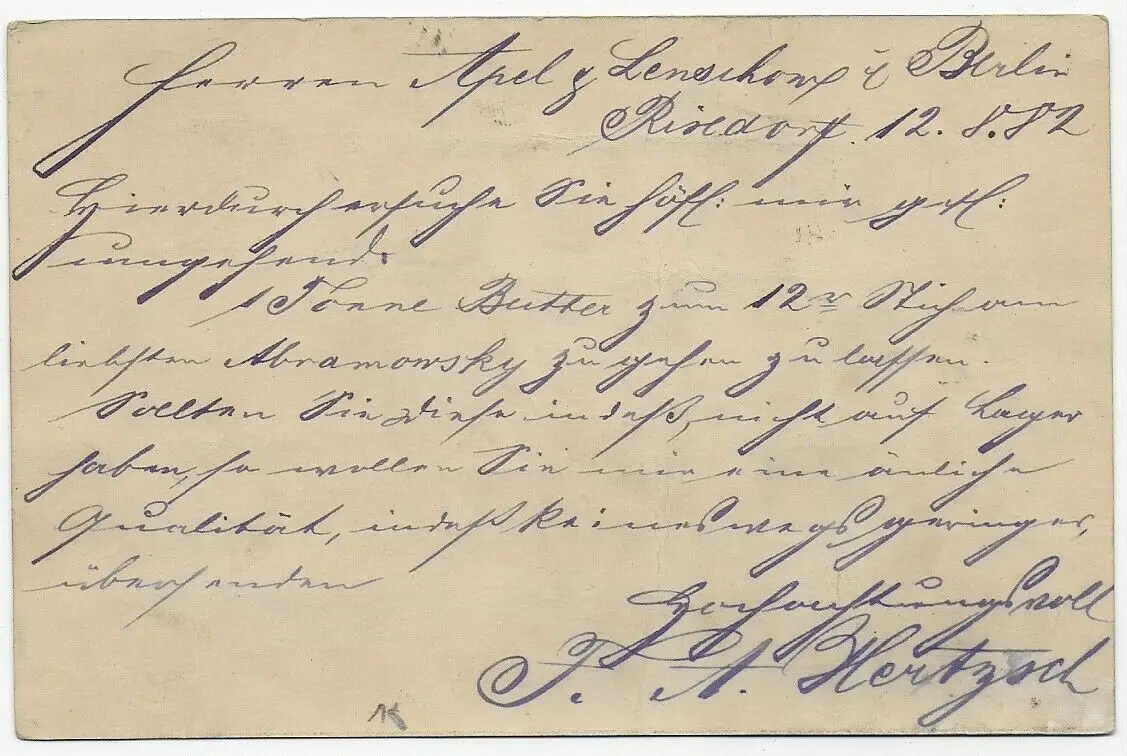 Herren Apel & Lenschow i/ Berlin
Rixdorf. 12.8.82
Hierdurch ersuche Sie höfl: mir gefl:
umgehend
1 Tonne Butter zum 12r Stich am
liebsten Abramowsky zugehen zu lassen.
Sollten Sie diese indeß nicht auf Lager
haben, so wollen Sie mir eine änliche
Qualität, indeß keineswegs geringer,
übersenden
Hochachtungsvoll
F. A. Hertzsch